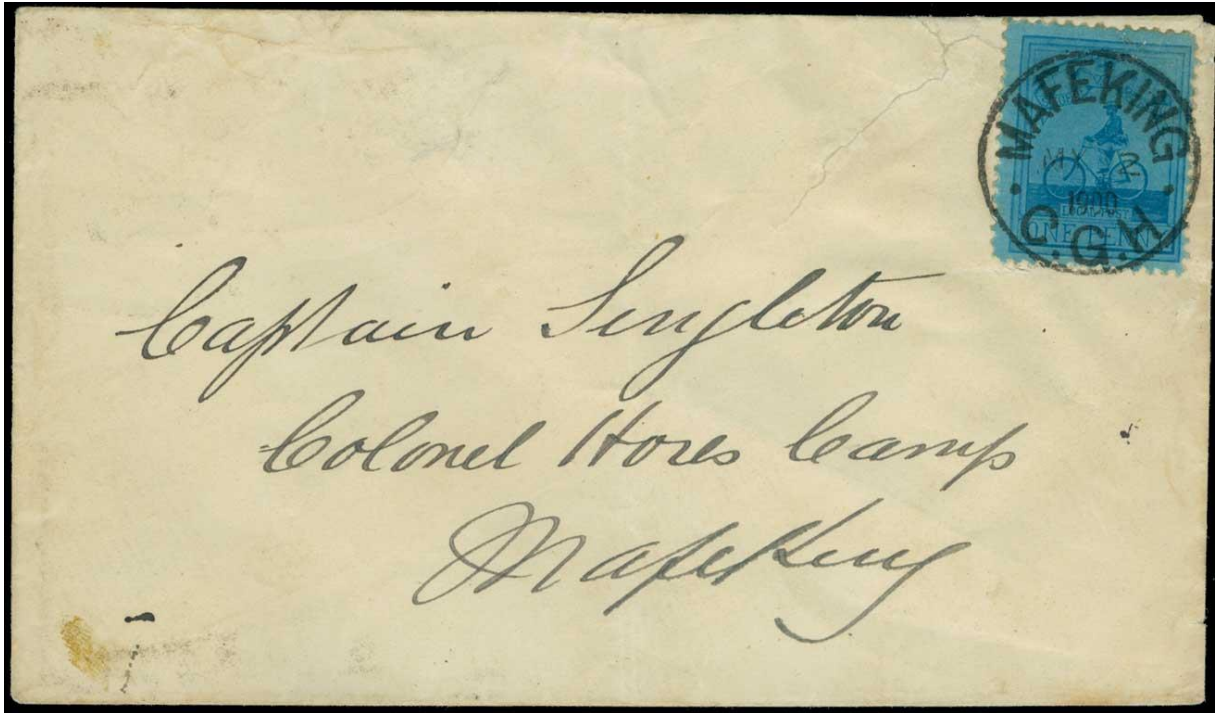 MAFEKING
MY 2
1900
C.G.H
ONE PENNY
Captain Singleton
Colonel Hores Camp
Mafeking